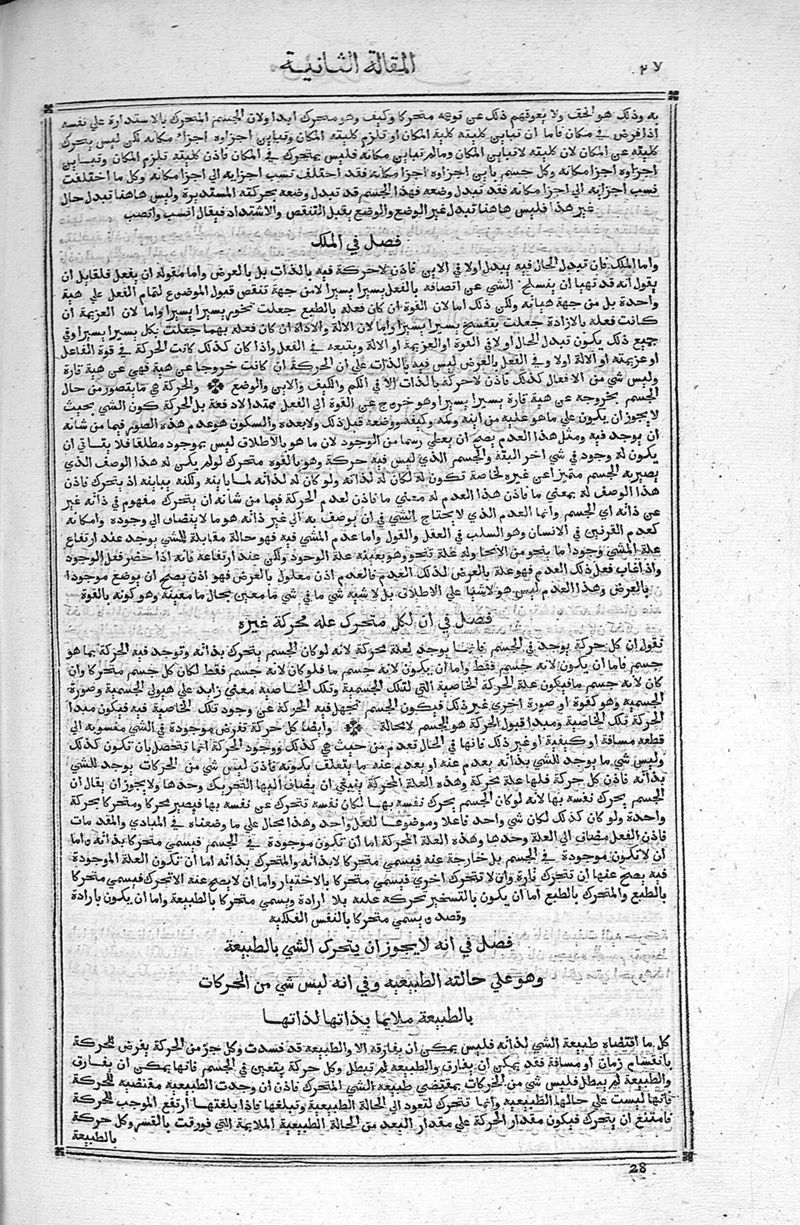 ٢٧
المقالة الثانية
به وذلك هو الحق ولا يعوقهم ذلك عن توهمه متحركا وكيف وهو متحرك ابدا ولان الجسم المتحرك بالاستدارة علي نفسه
اذا فرض في مكان فاما ان تباين كليته كلية المكان او تلزم كليته المكان وتباين اجزاوه اجزاء مكانه لكن ليس يتحرك
كليته عن المكان لان كليته لا تباين المكان وما لم تباين مكانه فليس بمتحرك في المكان فاذن كليته تلزم المكان وتباين
اجزاوه اجزا مكانه وكل جسم باين اجزاوه اجزا مكانه فقد اختلف نسب اجزايه الي اجزا مكانه وكل ما اختلفت
نسب اجزايه الي اجزا مكانه فقد تبدل وضعه فهذا الجسم قد تبدل وضعه بحركته المستديرة وليس هاهنا تبدل حال
غير هذا فليس هاهنا تبدل غير الوضع والوضع يقبل التنقص والاشتداد فيقال انسب وانصب
فصل في الملك
واما الملك فان تبدل الحال فيه يبدل اولا في الاين فاذن لا حركة فيه بالذات بل بالعرض واما مقولة ان يفعل فلقايل ان
يقول انه قد تهيا ان ينسلخ الشي عن اتصافه بالفعل يسيرا يسيرا لا من جهة تنقص قبول الموضوع لتمام الفعل علي هية
واحدة بل من جهة هياته ولكن ذلك اما لان القوة ان كان فعله بالطبع جعلت تخور يسيرا يسيرا واما لان العزيمة ان
كانت فعله بالارادة جعلت تنفسخ يسيرا يسيرا واما لان الالة والاداة ان كان فعله بهما جعلت تكل يسيرا يسيرا وفي
جميع ذلك يكون تبدل الحال اولا في القوة او العزيمة او الالة ويتبعه في الفعل واذا كان كذلك كانت الحركة في قوة الفاعل
او عزيمته او الالة اولا وفي الفعل بالعرض ليس فيه بالذات علي ان الحركة ان كانت خروجا عن هية فهي عن هية قارة
وليس شي من الافعال كذلك فاذن لا حركة بالذات الا في الكم والكيف والاين والوضع والحركة هي ما يتصور من حال
الجسم بخروجه عن هية قارة يسيرا يسيرا وهو خروج عن القوة الي الفعل ممتدا لا دفعة بل الحركة كون الشي بحيث
لا يجوز ان يكون علي ما هو عليه من اينه وكمه وكيفه ووضعه قبل ذلك ولا بعده والسكون هو عدم هذه الصور فيما من شانه
ان يوجد فيه ومثل هذا العدم يصح ان يعطي رسما من الوجود لان ما هو بالاطلاق ليس بموجود مطلقا فلا يتاتي ان
يكون له وجود في شي اخر البتة والجسم الذي ليس فيه حركة وهو بالقوه متحرك لو لم يكن له هذا الوصف الذي
يصير به الجسم متميزا عن غيره لخاصة تكون له لكان له لذاته ولو كان له لذاته لما باينه ولكنه يباينه اذ يتحرك فاذن
هذا الوصف له بمعني ما فاذن هذا العدم له معني ما فاذن لعدم الحركة فيما من شانه ان يتحرك مفهوم في ذاته غير
عن ذاته اي الجسم وانما العدم الذي لا يحتاج الشي في ان يوصف به الي غير ذاته هو ما لا ينضاف الي وجوده وامكانه
كعدم القرنين في الانسان وهو السلب في العقل والقول واما عدم المشي فيه فهو حالة مقابلة للمشي يوجد عند ارتفاع
علة المشي وجودا ما بنحو من الانحا وله علة تنحو وهو بعينه علة الوجود ولكن عند ارتفاعه فانه اذا حضر فعل الوجود
واذا غاب فعل ذلك العدم فهو علة بالعرض لذلك العدم فالعدم اذن معلول بالعرض فهو اذن يصح ان يوضع موجودا
بالعرض وهذا العدم ليس هو لا شيا علي الاطلاق بل لا شية شي ما في شي ما معين بحال ما معينة وهو كونه بالقوة
فصل في ان لكل متحرك عله محركة غيره
نقول ان كل حركة يوجد في الجسم فانما يوجد لعلة محركة لانه لو كان الجسم يتحرك بذاته وتوجد فيه الحركة بما هو
جسم فاما ان يكون لانه جسم فقط واما ان يكون لانه جسم ما فلو كان لانه جسم فقط لكان كل جسم متحركا وان
كان لانه جسم ما فيكون علة الحركة الخاصية التي لتلك الجسمية وتلك الخاصيه معني زايد علي هيولي الجسمية وصورة
الجسميه وهو كقوة او صورة اخري غير ذلك فيكون الجسم فيه الحركة عن وجود تلك الخاصية فيه فيكون مبدا
الحركة تلك الخاصية ومبدا قبول الحركة هو الجسم لا محالة وايضا كل حركة تفرض موجودة في الشي منسوبه الي
قطعه مسافة او كيفية او غير ذلك فانها في الحال تعدم من حيث هي كذلك ووجود الحركة انما تتحصل بان تكون كذلك
وليس شي ما يوجد للشي بذاته بعدم عنه او بعدم عنه ما يتعلق بكونه فاذن ليس شي من الحركات يوجد للشي
بذاته فاذن كل حركة فلها علة محركة وهذه العلة المحركة ينبغي ان يضاف اليها التحريك وحدها ولا يجوز ان يقال ان
الجسم يحرك نفسه بها لانه لو كان الجسم يحرك نفسه بهـا لكان نفسه تتحرك عن نفسه بها فيصير محركا ومتحركا بحركة
واحدة ولو كان كذلك لكان شي واحد فاعلا وموضوعا لفعل واحد وهذا محال علي ما وضعناه في المبادي والمقد مات
فاذن الفعل مضاف الي العلة وحدها وهذه العلة المحركة اما ان تكون موجودة في الجسم فيسمي متحركا بذاته واما
ان لا تكون موجودة في الجسم بل خارجة عنه فيسمي متحركا لا بذاته والمتحرك بذاته اما ان تكون العلة الموجودة
فيه يصح عنها ان تتحرك تارة وان لا تتحرك اخري فيسمي متحركا بالاختيار واما ان لا يصح عنه الا تحرك فيسمي متحركا
بالطبع والمتحرك بالطبع اما ان يكون بالتسخير تحركه علته بلا ارادة ويسمي متحركا بالطبيعة واما ان يكون بارادة
وقصد ويسمي متحركا بالنفس الفلكيه
فصل في انه لا يجوز ان يتحرك الشي بالطبيعة
وهو علي حالته الطبيعيه وفي انه ليس شي من الحركات
بالطبيعة ملايما بذاتها لذاتهـا
كل ما اقتضاه طبيعة الشي لذاته فليس يمكن ان يفارقه الا والطبيعة قد فسدت وكل جزء من الحركة يفرض للحركة
بانقسام زمان او مسافة فقد يمكن ان يفارق والطبيعة لم تبطل وكل حركة يتعين في الجسم فانها يمكن ان يفارق
والطبيعة لم يبطل فليس شي من الحركات بمقتضي طبيعة الشي المتحرك فاذن ان وجدت الطبيعيه مقتضيه للحركة
فانها ليست علي حالها الطبيعيه وانما تتحرك لتعود الي الحالة الطبيعية وتبلغها فاذا بلغتها ارتفع الموجب للحركة
فامتنع ان يتحرك فيكون مقدار الحركة علي مقدار البعد من الحالة الطبيعية الملايمة التي فورقت بالقسر وكل حركة
بالطبيعة
28